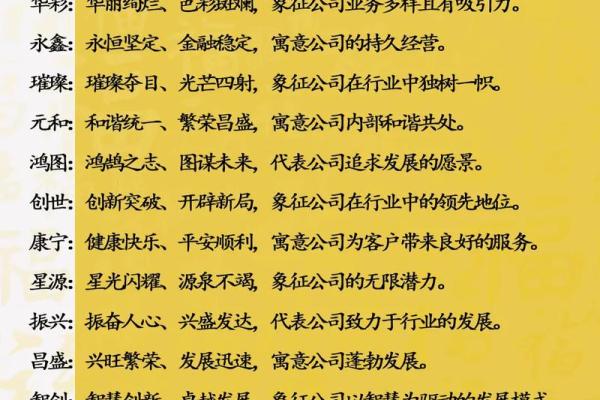 华彩：华丽绚烂、色彩斑斓，象征公司业务多样且有吸引力。
永鑫：永恒坚定、金融稳定，寓意公司的持久经营。
璀璨：璀璨夺目、光芒四射，象征公司在行业中独树一帜。
元和：和谐统一、繁荣昌盛，寓意公司内部和谐共处。
鸿图：鸿鹄之志、图谋未来，代表公司追求发展的愿景。
创世：创新突破、开辟新局，象征公司在行业中的领先地位。
康宁：健康快乐、平安顺利，寓意公司为客户带来良好的服务。
星源：星光闪耀、源泉不竭，象征公司的无限潜力。
振兴：振奋人心、兴盛发达，代表公司致力于行业的发展。
昌盛：兴旺繁荣、发展迅速，寓意公司蓬勃发展。
智创：智慧创新、卓越发展，象征公司以智慧为驱动的发展模式